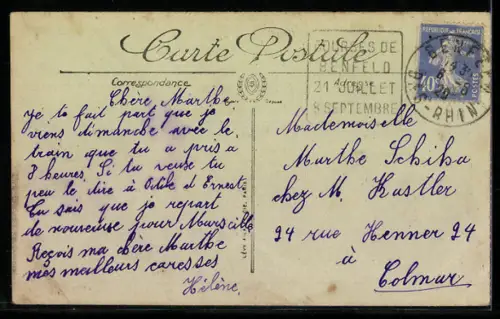 Carte Postale
Correspondance
COURSES DE
BENFELD
21 JUILLET
8 SEPTEMBRE
BENFELD
BAS-RHIN
REPUBLIQUE FRANÇAISE
40
Chère Marthe
Je te fait part que je
viens dimanche avec le
train que tu a pris a
8 heures. Si tu veux tu
peu le dire à Odile et Ernest
Tu sais que je repart
de nouveaux pour Marseille
Reçois ma chère Marthe
mes meilleurs caresses
Hélène
Mademoiselle
Marthe Schiba
chez M. Kastler
24 rue Henner 24
à
Colmar